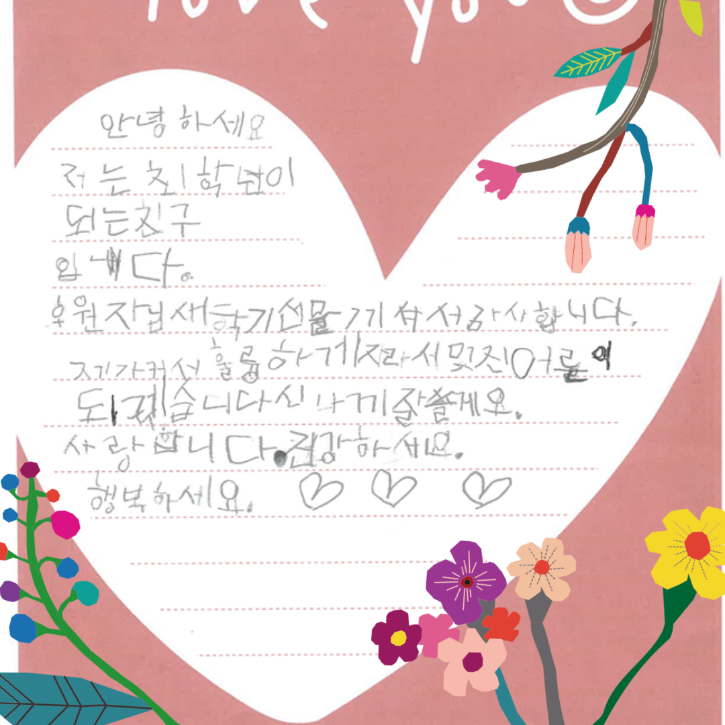 love you
안녕하세요
저는 1학년이
되는친구
입니다.
후원자님새학기선물 서감사합니다.
커서 훌륭하게자라서멎진어른이
되겠습니다신나게잘쓸게요.
사랑합니다.건강하세요.
행복하세요.